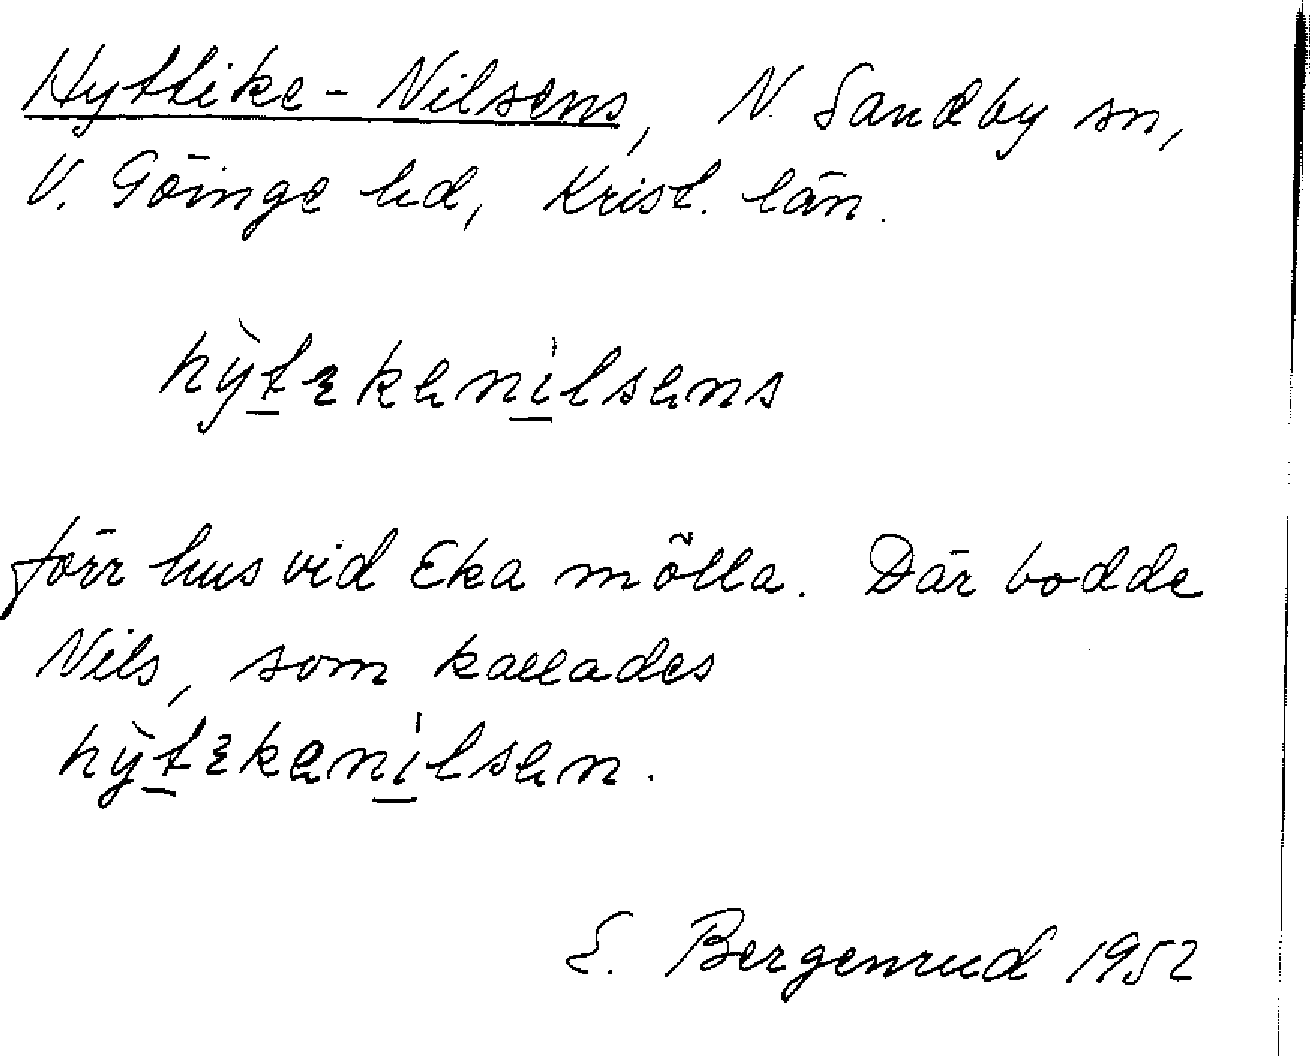 Hyttike-Nilsens, N. Sandby sn,
V. Göinge hd, Krist. län.
hỳtɛkenilsens
förr hus vid Eka mölla. Där bodde
Nils, som kallades
hỳtɛkenilsen.
E. Bergenrud 1952